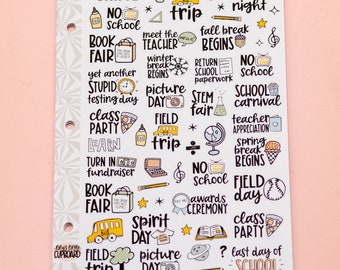 trip
night
NO
School
BOOK
FAIR
meet the
TEACHER
fall break
BEGINS
yet another
STUPID
testing day
winter
break
BEGINS
RETURN
SCHOOL
paperwork
NO
School
picture
DAY
STEM
fair
SCHOOL
carnival
class
PARTY
FIELD
trip
teacher
APPRECIATION
LEARN
spring
break
BEGINS
TURN IN
fundraiser
NO
School
FIELD
day
BOOK
FAIR
awards
CEREMONY
spirit
DAY
class
PARTY
CUPBOARD
FIELD
trip
picture
DAY
?
last day of
SCHOOL